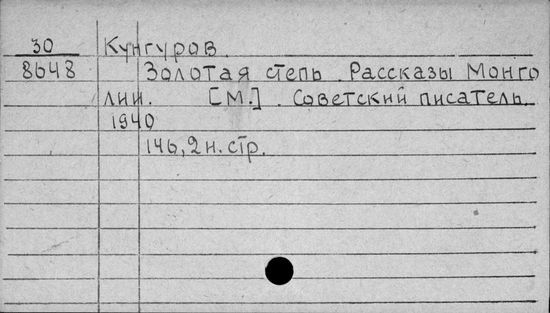 30 Кунгуров.
8648 Золотая степь. Рассказы Монго
лии. [М.]. Советский писатель.
1940
146, 2 н. стр.